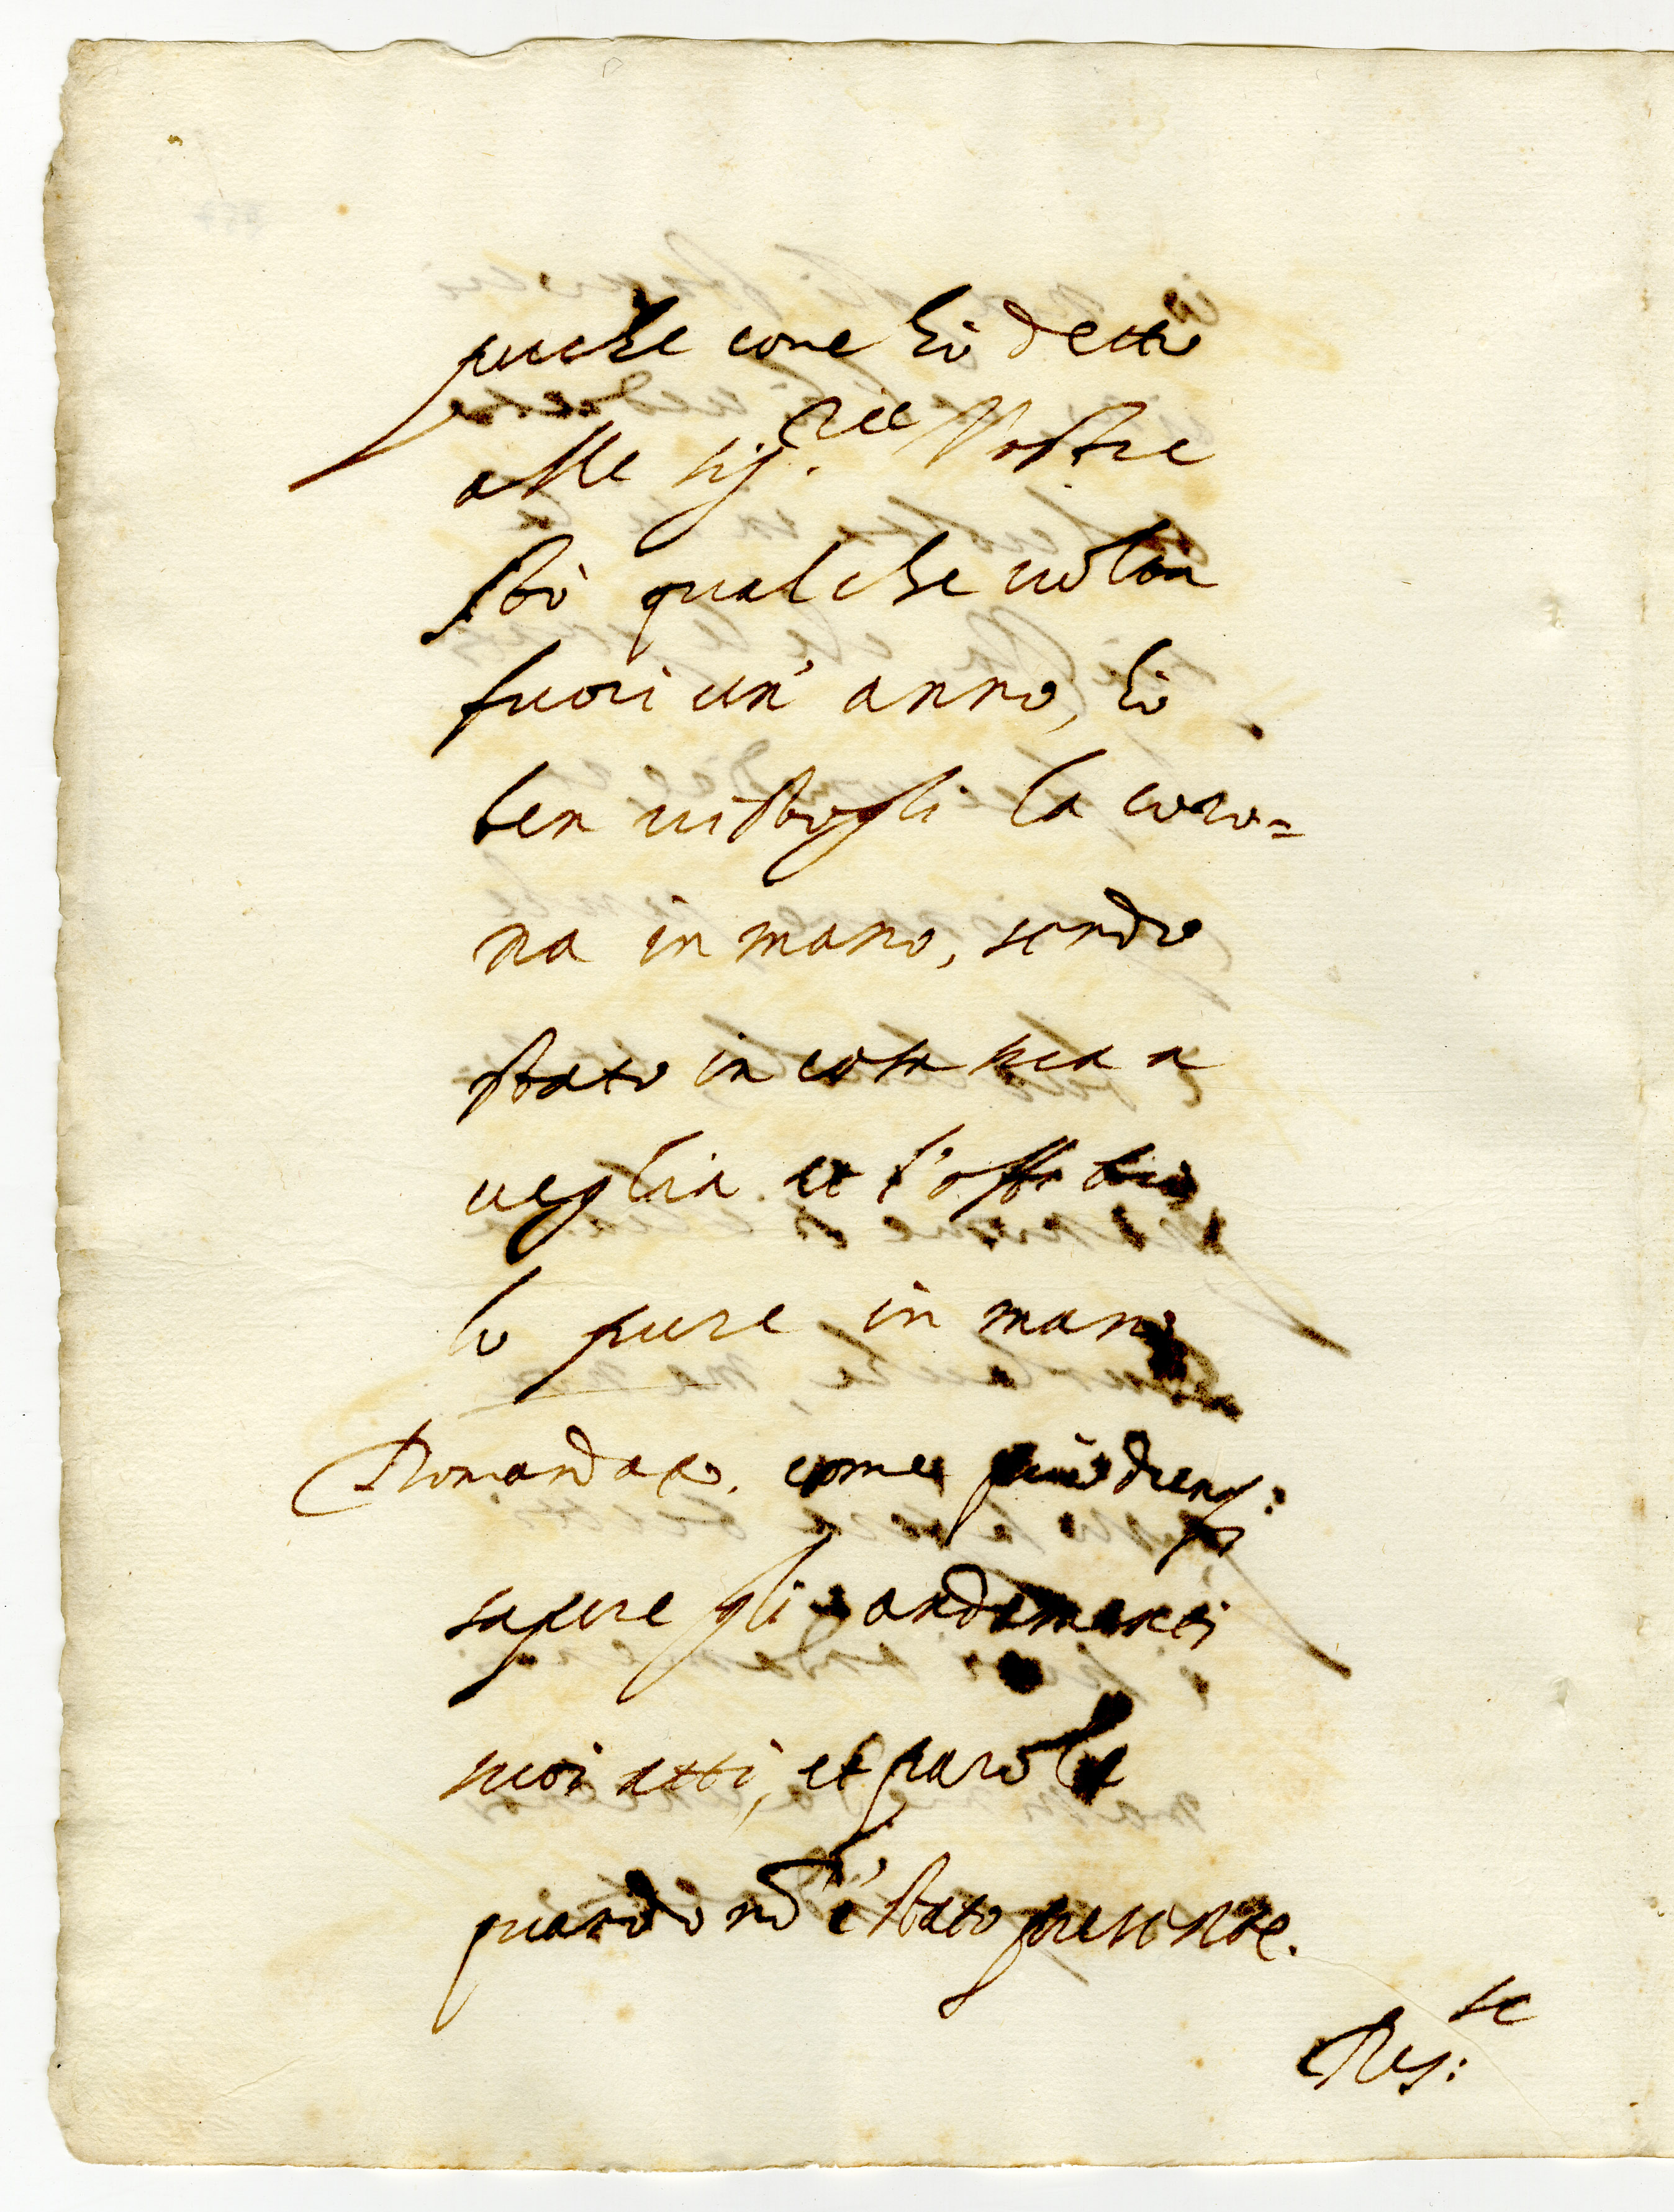 perche come hò detto
alle Sig.rie Vostre
stò qualche uolta
fuori un' anno, hò
ben uistogli la coro=
na in mano, sendo
stato in casa mea a
ueglia et l'offitio
lo pure in mano
Domandato. come può dire
sapere gli andamenti
suoi atti, et parole
quando nō è stato presente.
Res: se